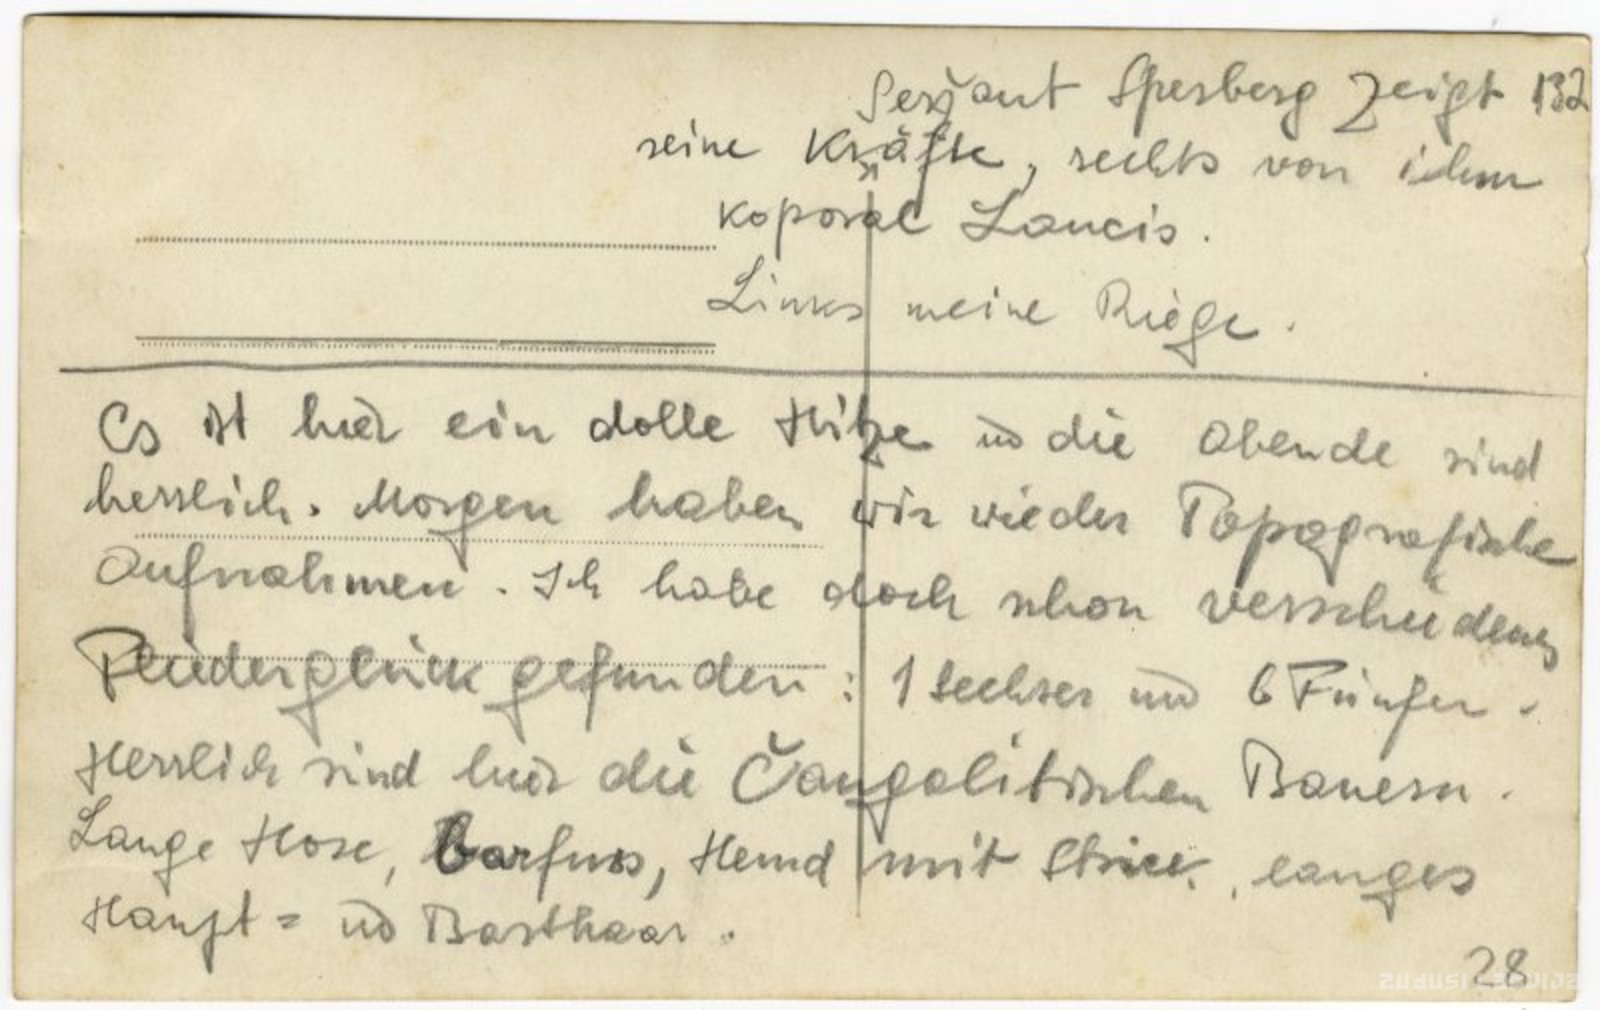 Serjant Spersberg zeigt 132
seine Kräfte, rechts von ihm
Koporal Lancis.
Links meine Riege.
Es ist hier ein dolle Hitze u die Abende sind
herrlich. Morgen haben wir wieder Topografische
Aufnahmen. Ich habe doch schon verschiedenes
Fliederglück gefunden: 1 Sechser und 6 Fünfer.
Herrlich sind hier die Čangalitischen Bauern.
Lange Hose, barfuss, Hemd mit Strick, langes
Haupt= ud Barthaar.
28